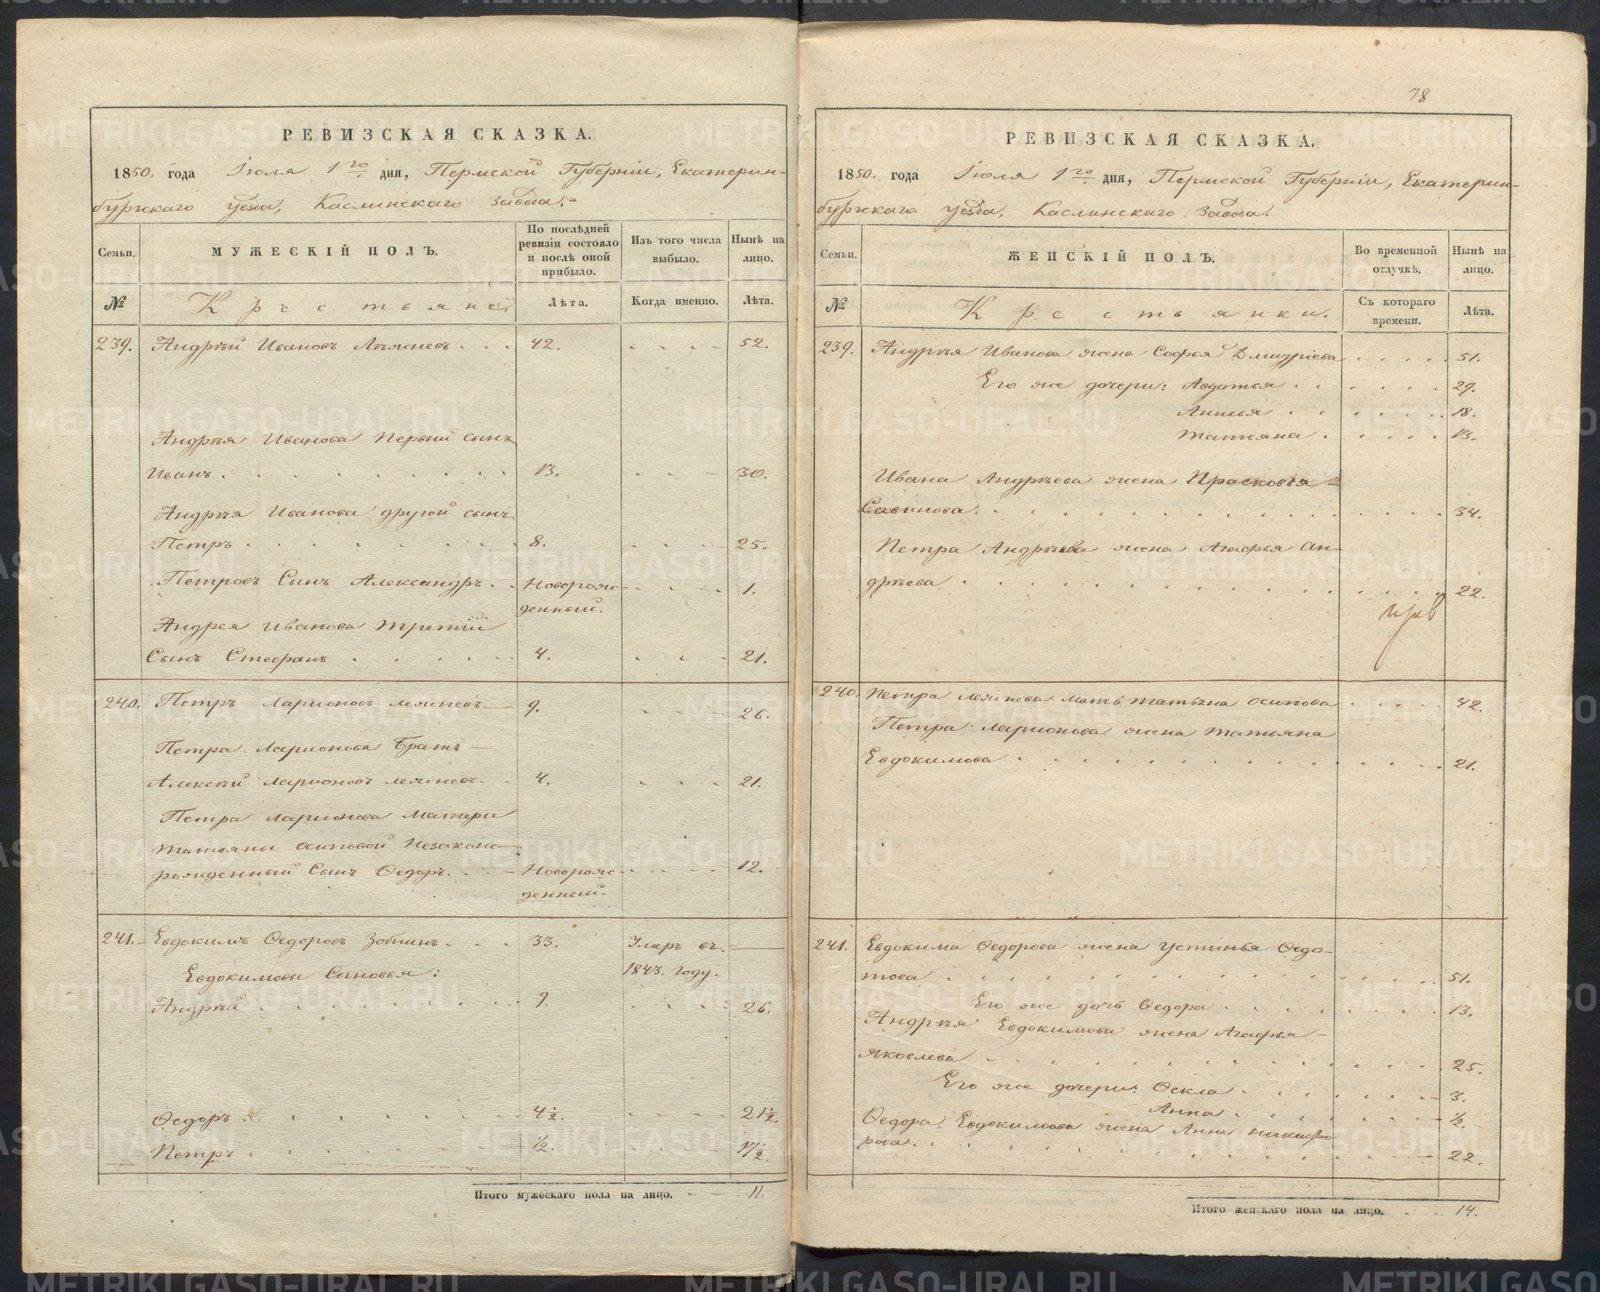 РЕВИЗСКАЯ СКАЗКА.
1850. года Іюля 1го дня, Пермской Губерніи, Екатерин-
бургскаго уезда, Каслинскаго завода.
Семьи.
МУЖЕСКІЙ ПОЛЪ.
По послѣдней ревизіи состояло и послѣ оной прибыло.
Изъ того числа выбыло.
Нынѣ на лицо.
№
Крестьяне.
Лѣта.
Когда именно.
Лѣта.
239. Андрѣй Ивановъ 42. 52.
Андрѣя Иванова Первый сынъ
Иванъ. 13. 30.
Андрѣя Иванова другой сынъ
Петръ 8. 25.
Петровъ Сынъ Александръ. Новорож- 1.
денный.
Андрея Иванова третій
Сынъ Стефанъ 4. 21.
240. Петръ Ларионовъ 9. 26.
Петра Ларионова Братъ
Алексѣй Ларионовъ 4. 21.
Петра Ларионова Матери
Татьяны Осиповой Незаконо-
рожденный Сынъ Ѳедоръ. Новорож- 12.
денный.
241. Евдокимъ Ѳедоровъ Зобнинъ. 33. Умеръ въ
Евдокимовы Сыновья: 1843. году.
Андрѣй 9. 26.
Ѳедоръ 4½. 21½.
Петръ ½. 17½.
Итого мужескаго пола на лицо. 11.
78
РЕВИЗСКАЯ СКАЗКА.
1850. года Іюля 1го дня, Пермской Губерніи, Екатерин-
бургскаго уезда, Каслинскаго завода.
Семьи.
ЖЕНСКІЙ ПОЛЪ.
Во временной отлучкѣ.
Нынѣ на лицо.
№
Крестьянки.
Съ котораго времени.
Лѣта.
239. Андрѣя Иванова жена Софья Дмитріева 51.
Его же дочери: Авдотья 29.
Анисья 18.
Татьяна 13.
Ивана Андрѣева жена Просковья
Савинова. 34.
Петра Андрѣева жена Агафья Ан-
дрѣева 22.
240. Петра мать Татьяна Осипова 42.
Петра Ларионова жена Татьяна
Евдокимова 21.
241. Евдокима Ѳедорова жена Устинья Ѳедо-
това 51.
Его же дочь Ѳедора 13.
Андрѣя Евдокимова жена Агафья
Яковлева 25.
Его же дочери: Ѳекла 3.
Анна ½
Ѳедора Евдокимова жена Анна Никифо
рова. 22.
Итого женскаго пола на лицо. 14.
METRIKI.GASO-URAL.RU